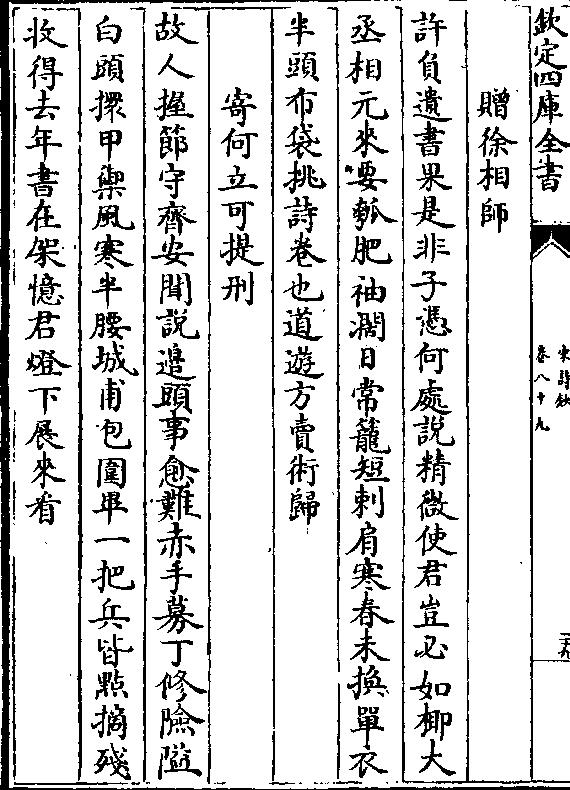 欽定四庫全書
宋詩鈔
卷八十九
贈徐相師
許負遺書果是非子憑何處說精微使君豈必如椰大
丞相元來要瓠肥袖濶日常籠短刺肩寒春未換單衣
半頭布袋挑詩卷也道遊方賣術歸
寄何立可提刑
故人握節守齊安聞說邉頭事愈難赤手募丁修險隘
白頭擐甲禦風寒半腰城甫包圍畢一把兵皆點摘殘
收得去年書在架憶君燈下展來看